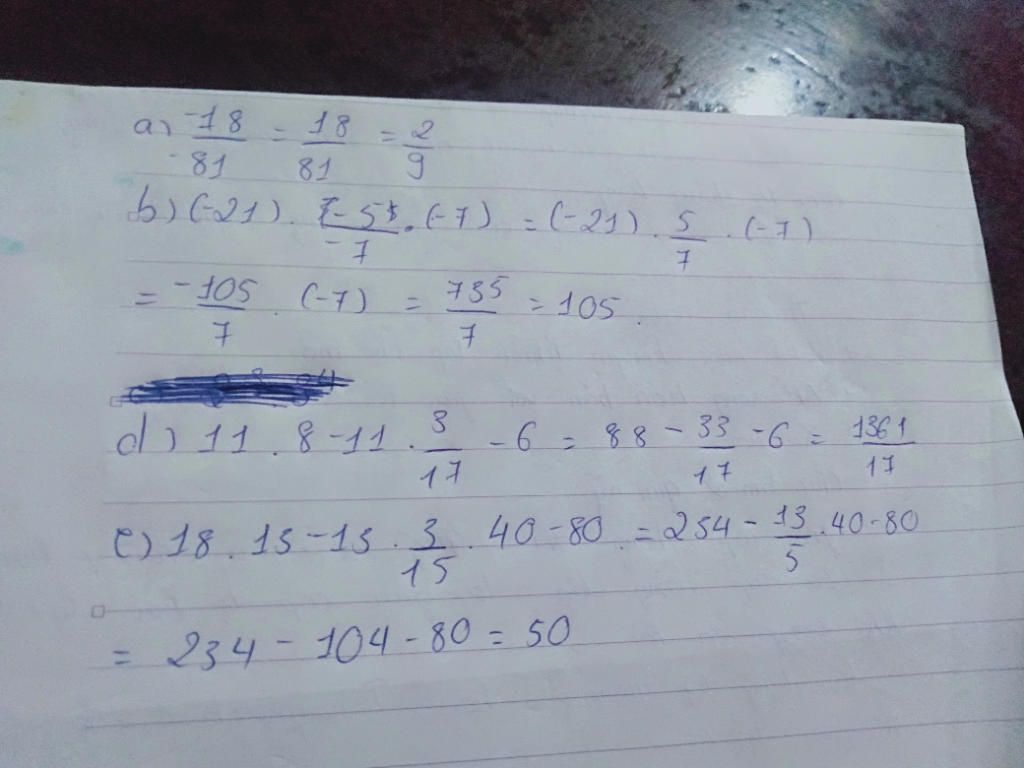 a) -18/-81 = 18/81 = 2/9
b) (-21) . (-5)/-7 . (-7) = (-21) . 5/7 . (-7)
= -105/7 . (-7) = 735/7 = 105.
d) 11 . 8 - 11 . 3/17 - 6 = 88 - 33/17 - 6 = 1361/17
e) 18 . 13 - 13 . 3/15 . 40 - 80 = 234 - 13/5 . 40 - 80
= 234 - 104 - 80 = 50